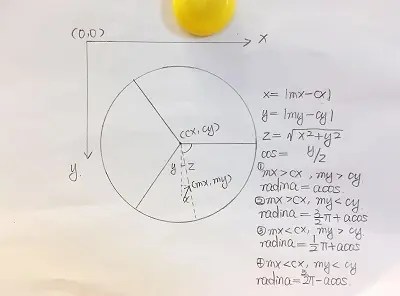 (0,0)
x
y
(cx, cy)
y
z
(mx, my)
x
x = |mx-cx|
y = |my-cy|
z = √x²+y²
cos = y/z
① mx>cx, my>cy
radina = acos.
② mx>cx, my<cy
radina = 3/2π+acos
③ mx<cx, my>cy.
radina = 1/2π+acos
④ mx<cx, my<cy
radina = π-acos.